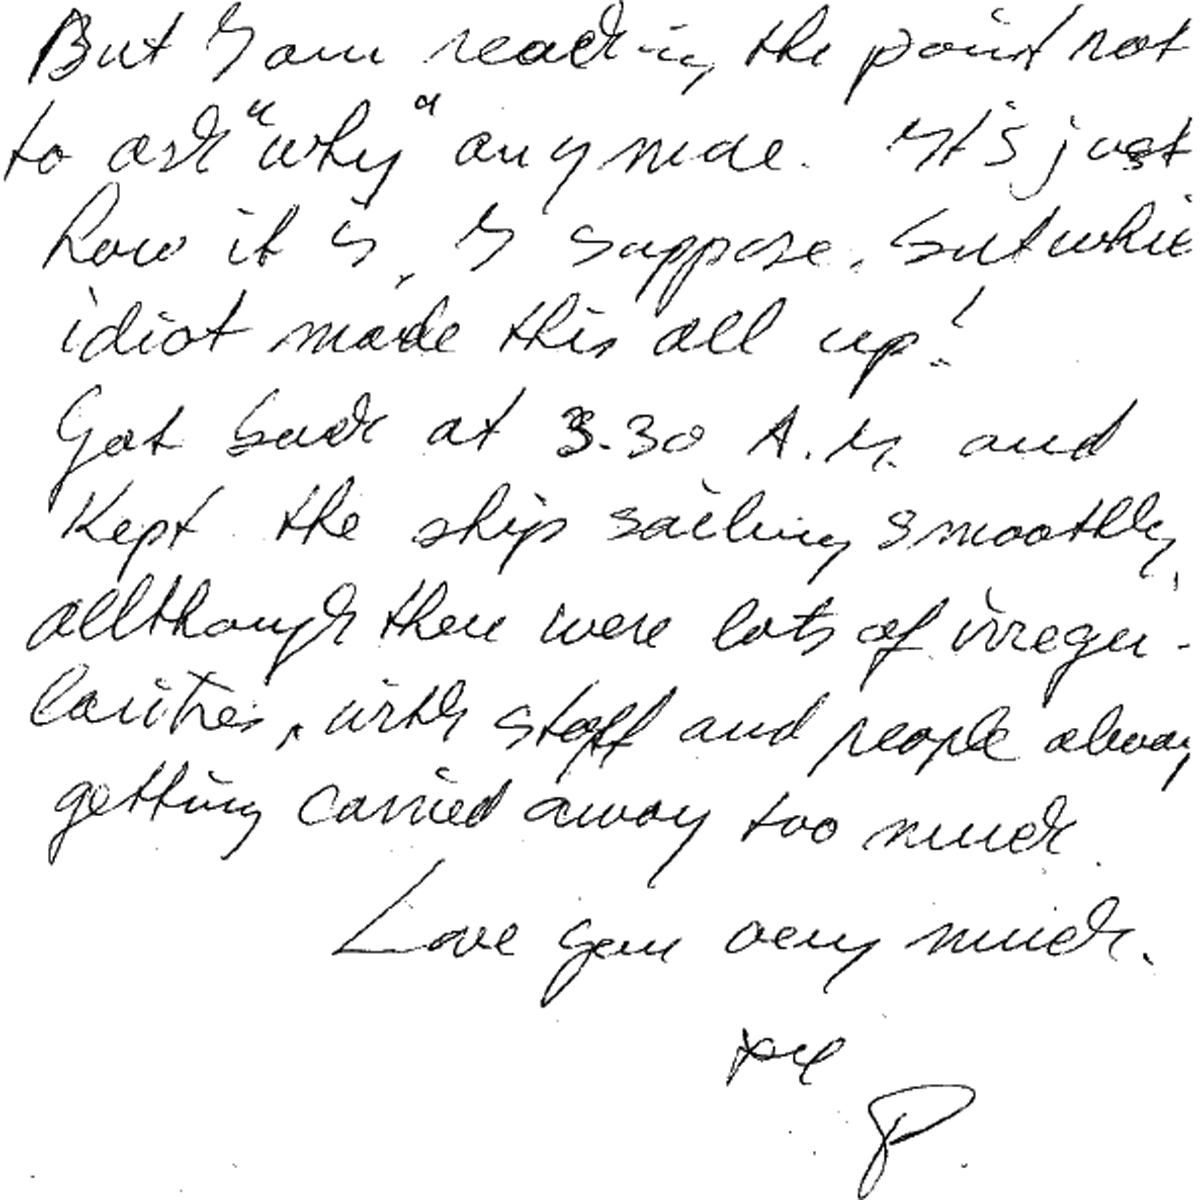 But I am reaching the point not
to ask "why" anymore. It's just
how it is, I suppose, but which
idiot made this all up!
Got back at 3.30 A.M. and
kept the ship sailing smoothly,
allthough there were lots of irregu-
larities, with staff and people always
getting carried away too much.
Love you very much.
P.